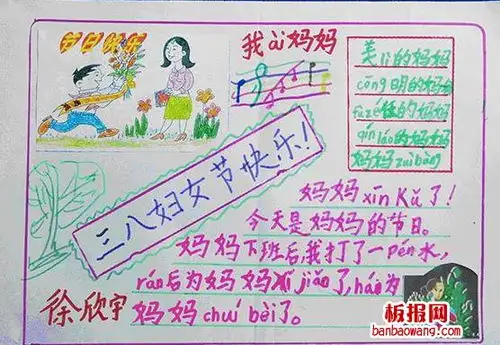 节日快乐
我ài妈妈
美lì的妈妈
cōng明的妈妈
fùzé任的妈妈
qín láo的妈妈
妈妈zuì bàng
三八妇女节快乐!
妈妈xīn Kǔ了!
今天是妈妈的节日。
妈妈下班后,我打了一pén水,
rán后为妈妈xǐ jiǎo了,hái为
妈妈chuí bèi了。
徐欣宇
板报网
banbaowang.com